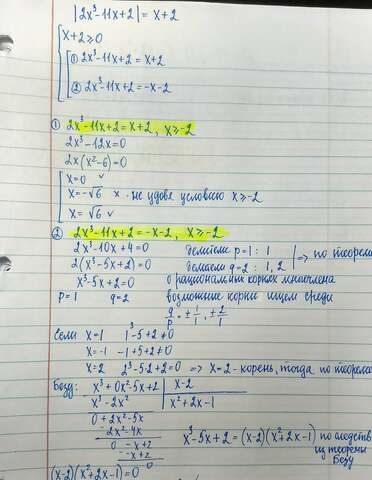 |2x³-11x+2| = x+2
x+2≥0
① 2x³-11x+2=x+2
② 2x³-11x+2=-x-2
① 2x³-11x+2=x+2, x≥-2
2x³-12x=0
2x(x²-6)=0
x=0 ✓
x=-√6 x - не удовл условию x≥-2
x=√6 ✓
② 2x³-11x+2=-x-2, x≥-2
2x³-10x+4=0 делители p=1: 1 ⇒ по теореме
2(x³-5x+2)=0 делители q=2: 1, 2
x³-5x+2=0 о рациональных корнях многочлена
p=1 q=2 возможные корни ищем среди
q/p = ±1/1, ±2/1
Если x=1 1³-5+2≠0
x=-1 -1+5+2≠0
x=2 2³-5·2+2=0 ⇒ x=2-корень, тогда по теореме
Безу: x³+0x²-5x+2 | x-2
x³-2x² x²+2x-1
0+2x²-5x
2x²-4x
0 -x+2 x³-5x+2=(x-2)(x²+2x-1) по следств
-x+2 из теоремы
0 Безу
(x-2)(x²+2x-1)=0